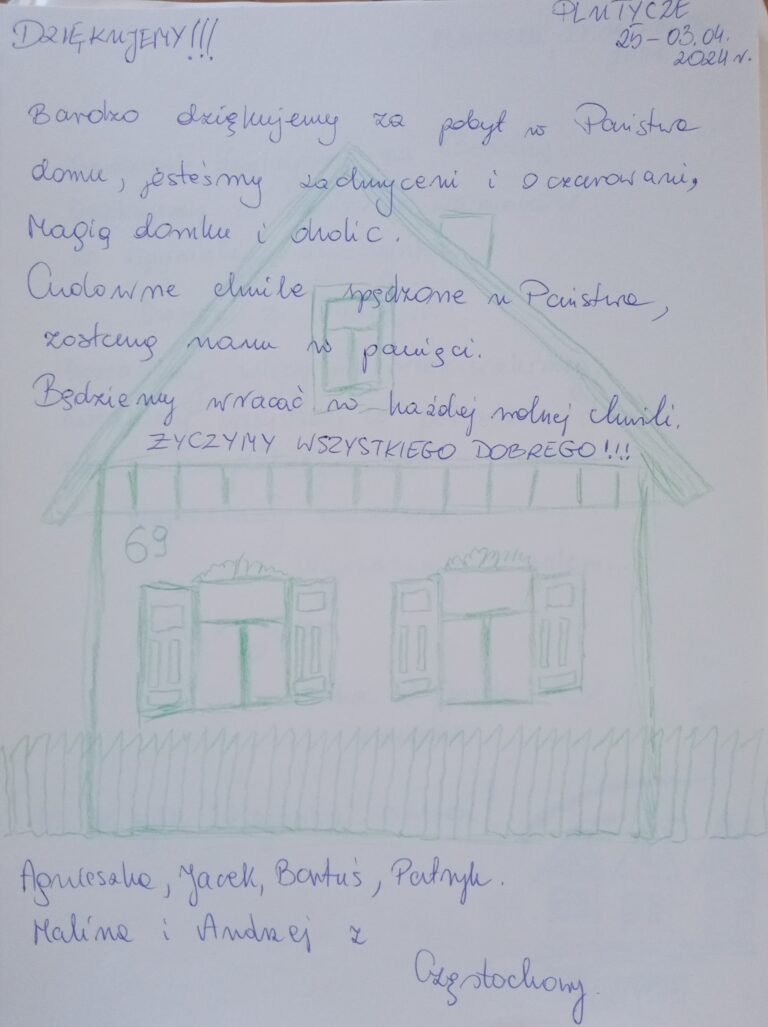 DZIĘKUJEMY!!!
PLUTYCZE
25-03.04.
2024 r.
Bardzo dziękujemy za pobyt w Państwa
domu, jesteśmy zachwyceni i oczarowani,
Magią domku i okolic.
Cudowne chwile spędzone u Państwa,
zostaną nam w pamięci.
Będziemy wracać w każdej wolnej chwili.
ŻYCZYMY WSZYSTKIEGO DOBREGO!!!
69
Agnieszka, Jacek, Bartuś, Patryk.
Malina i Andrzej z
Częstochowy.